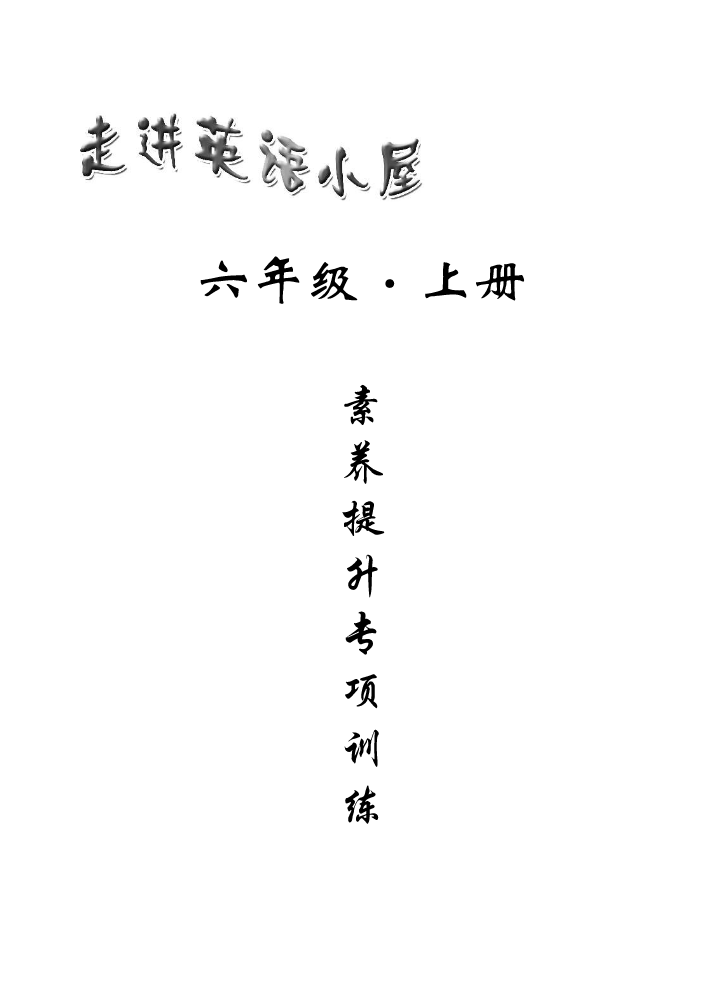 走进英语小屋
六年级·上册
素养提升专项训练